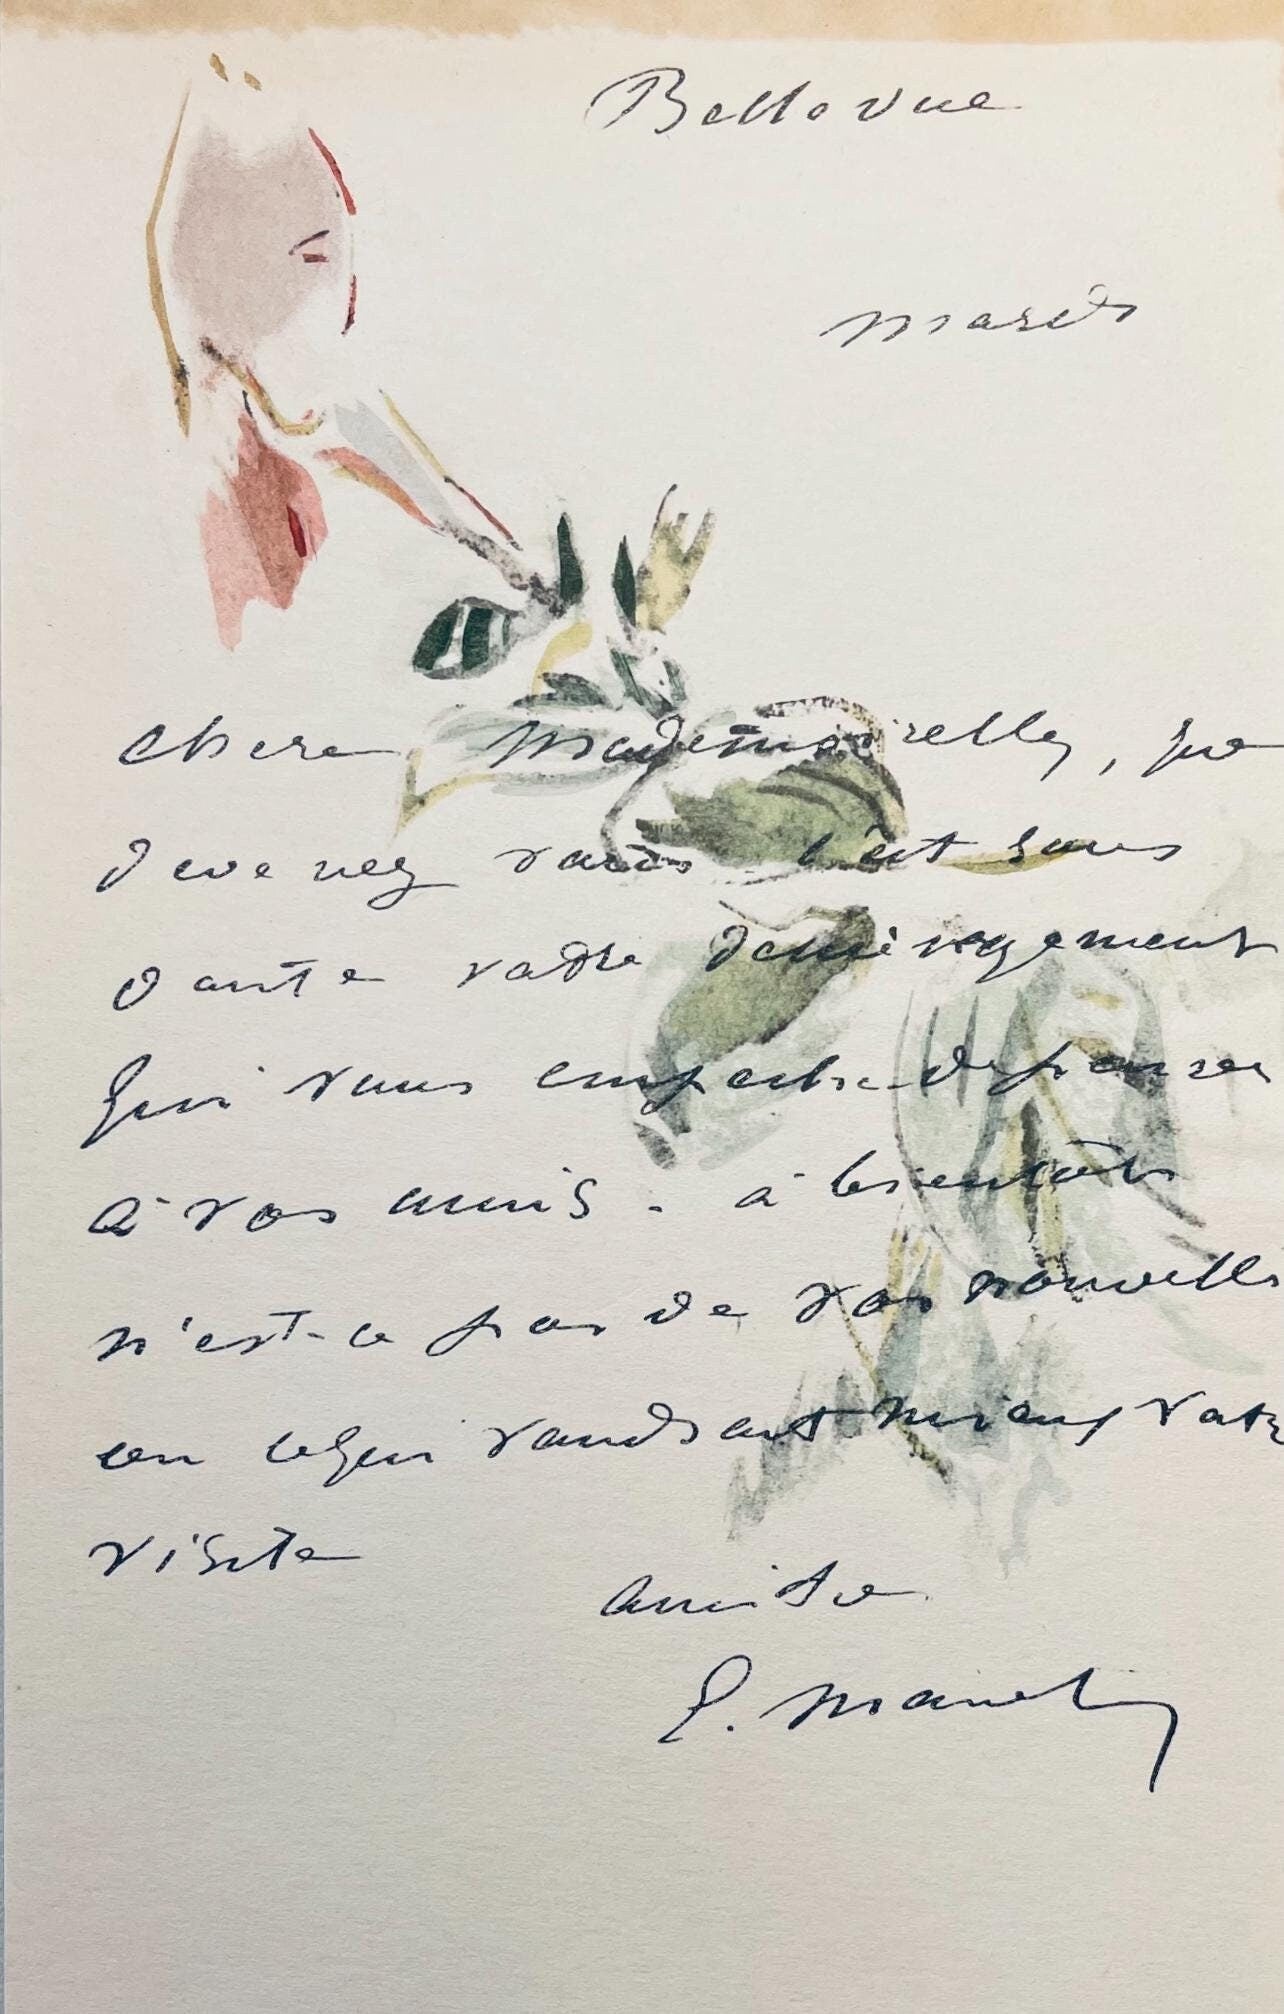 Bellevue
mardi
chère Mademoiselle, que
devenez vous c'est sans
doute votre déménagement
qui vous empêche de penser
à vos amis. à bientôt
n'est-ce pas de vos nouvelles
ou ce qui vaudrait mieux votre
visite
amitié
E. Manet